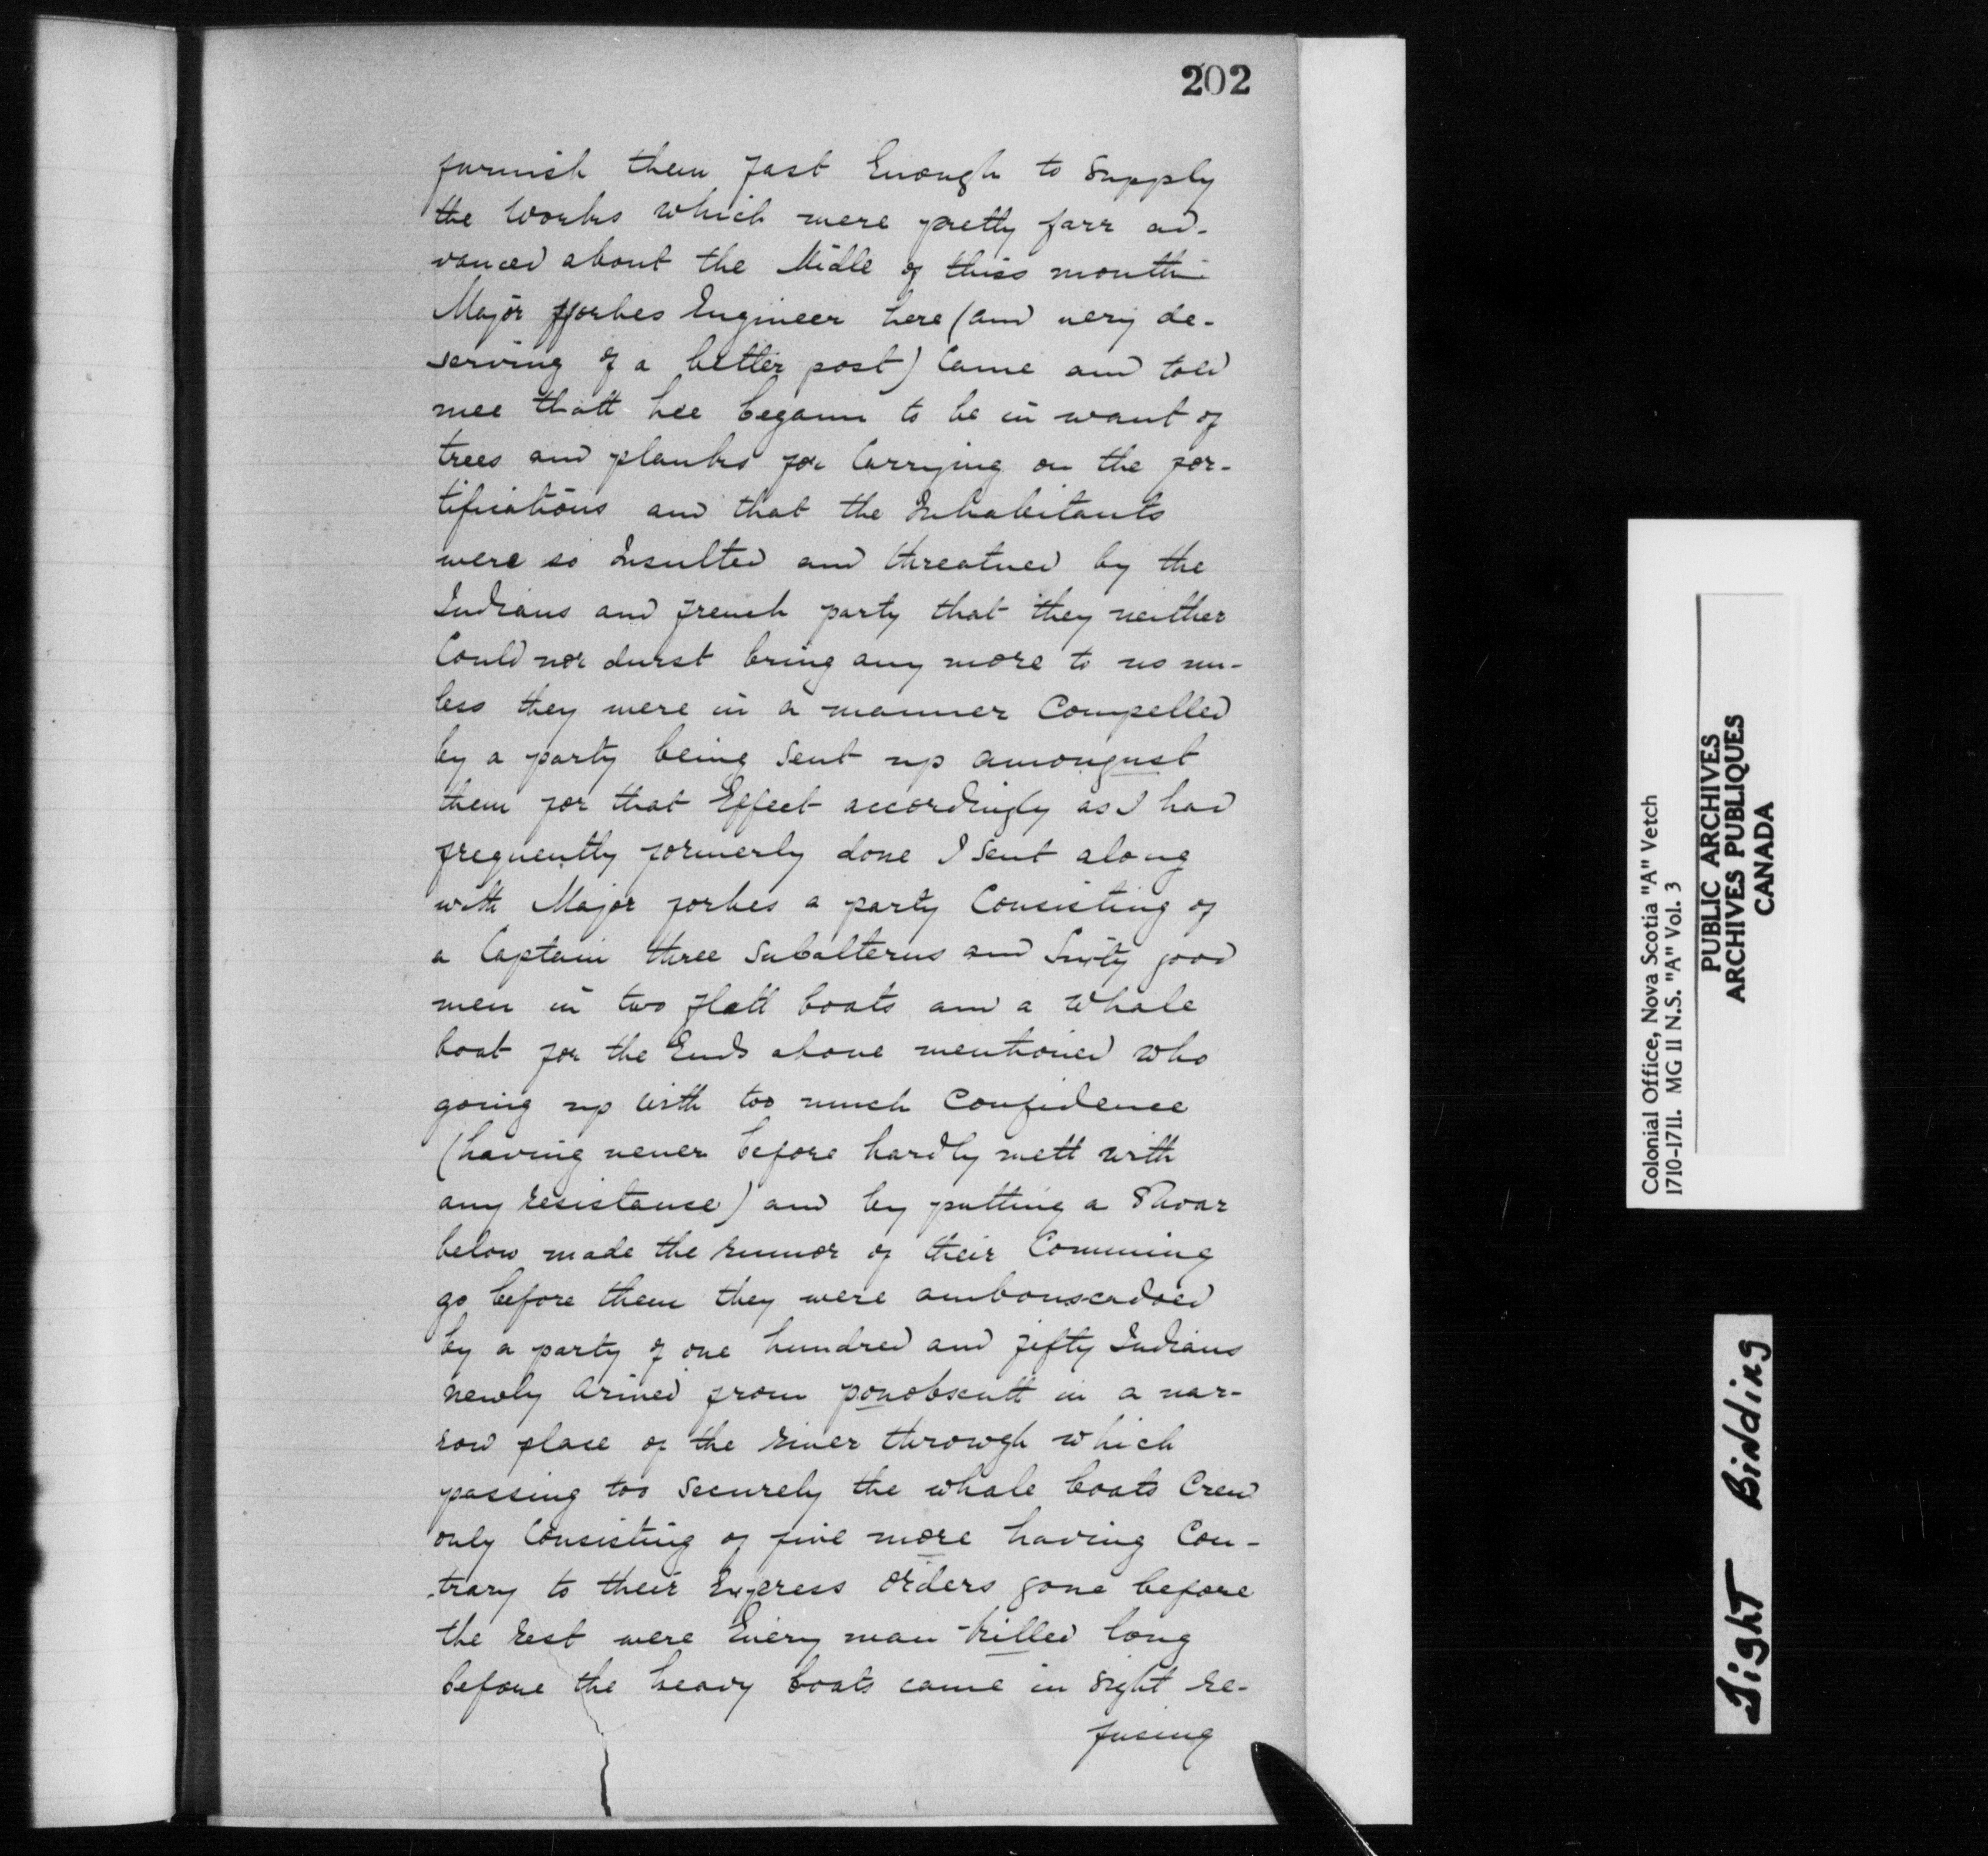 202
furnish them fast Enough to Supply
the Works which were pretty farr ad-
vanced about the Midle of thiss month
Major fforbes Engineer here (and very de-
serving of a better post) Came and told
mee thatt hee begann to be in want of
trees and planks for Carrying on the for-
tifications and that the Inhabitants
were so Insulted and threatned by the
Indians and french party that they neither
Could nor durst bring any more to us un-
less they were in a manner Compelled
by a party being Sent up amongust
them for that Effect accordingly as I had
frequently formerly done I Sent along
with Major forbes a party Consisting of
a Captain three Subalterns and Sixty good
men in two flatt boats and a Whale
boat for the Ends above mentioned who
going up with too much Confidence
(having never before hardly mett with
any resistance) and by putting a Shoar
below made the rumor of their Comming
go before them they were ambouscadoed
by a party of one hundred and fifty Indians
newly arived from ponobscutt in a nar-
row place of the river throwgh which
passing too Securely the whale boats Crew
only Consisting of five more having Con-
trary to their Express orders gone before
the rest were Every man killed long
before the heavy boats came in Sight re-
fusing
Colonial Office, Nova Scotia "A" Vetch
1710-1711. MG 11 N.S. "A" Vol. 3
PUBLIC ARCHIVES
ARCHIVES PUBLIQUES
CANADA
Tight Binding